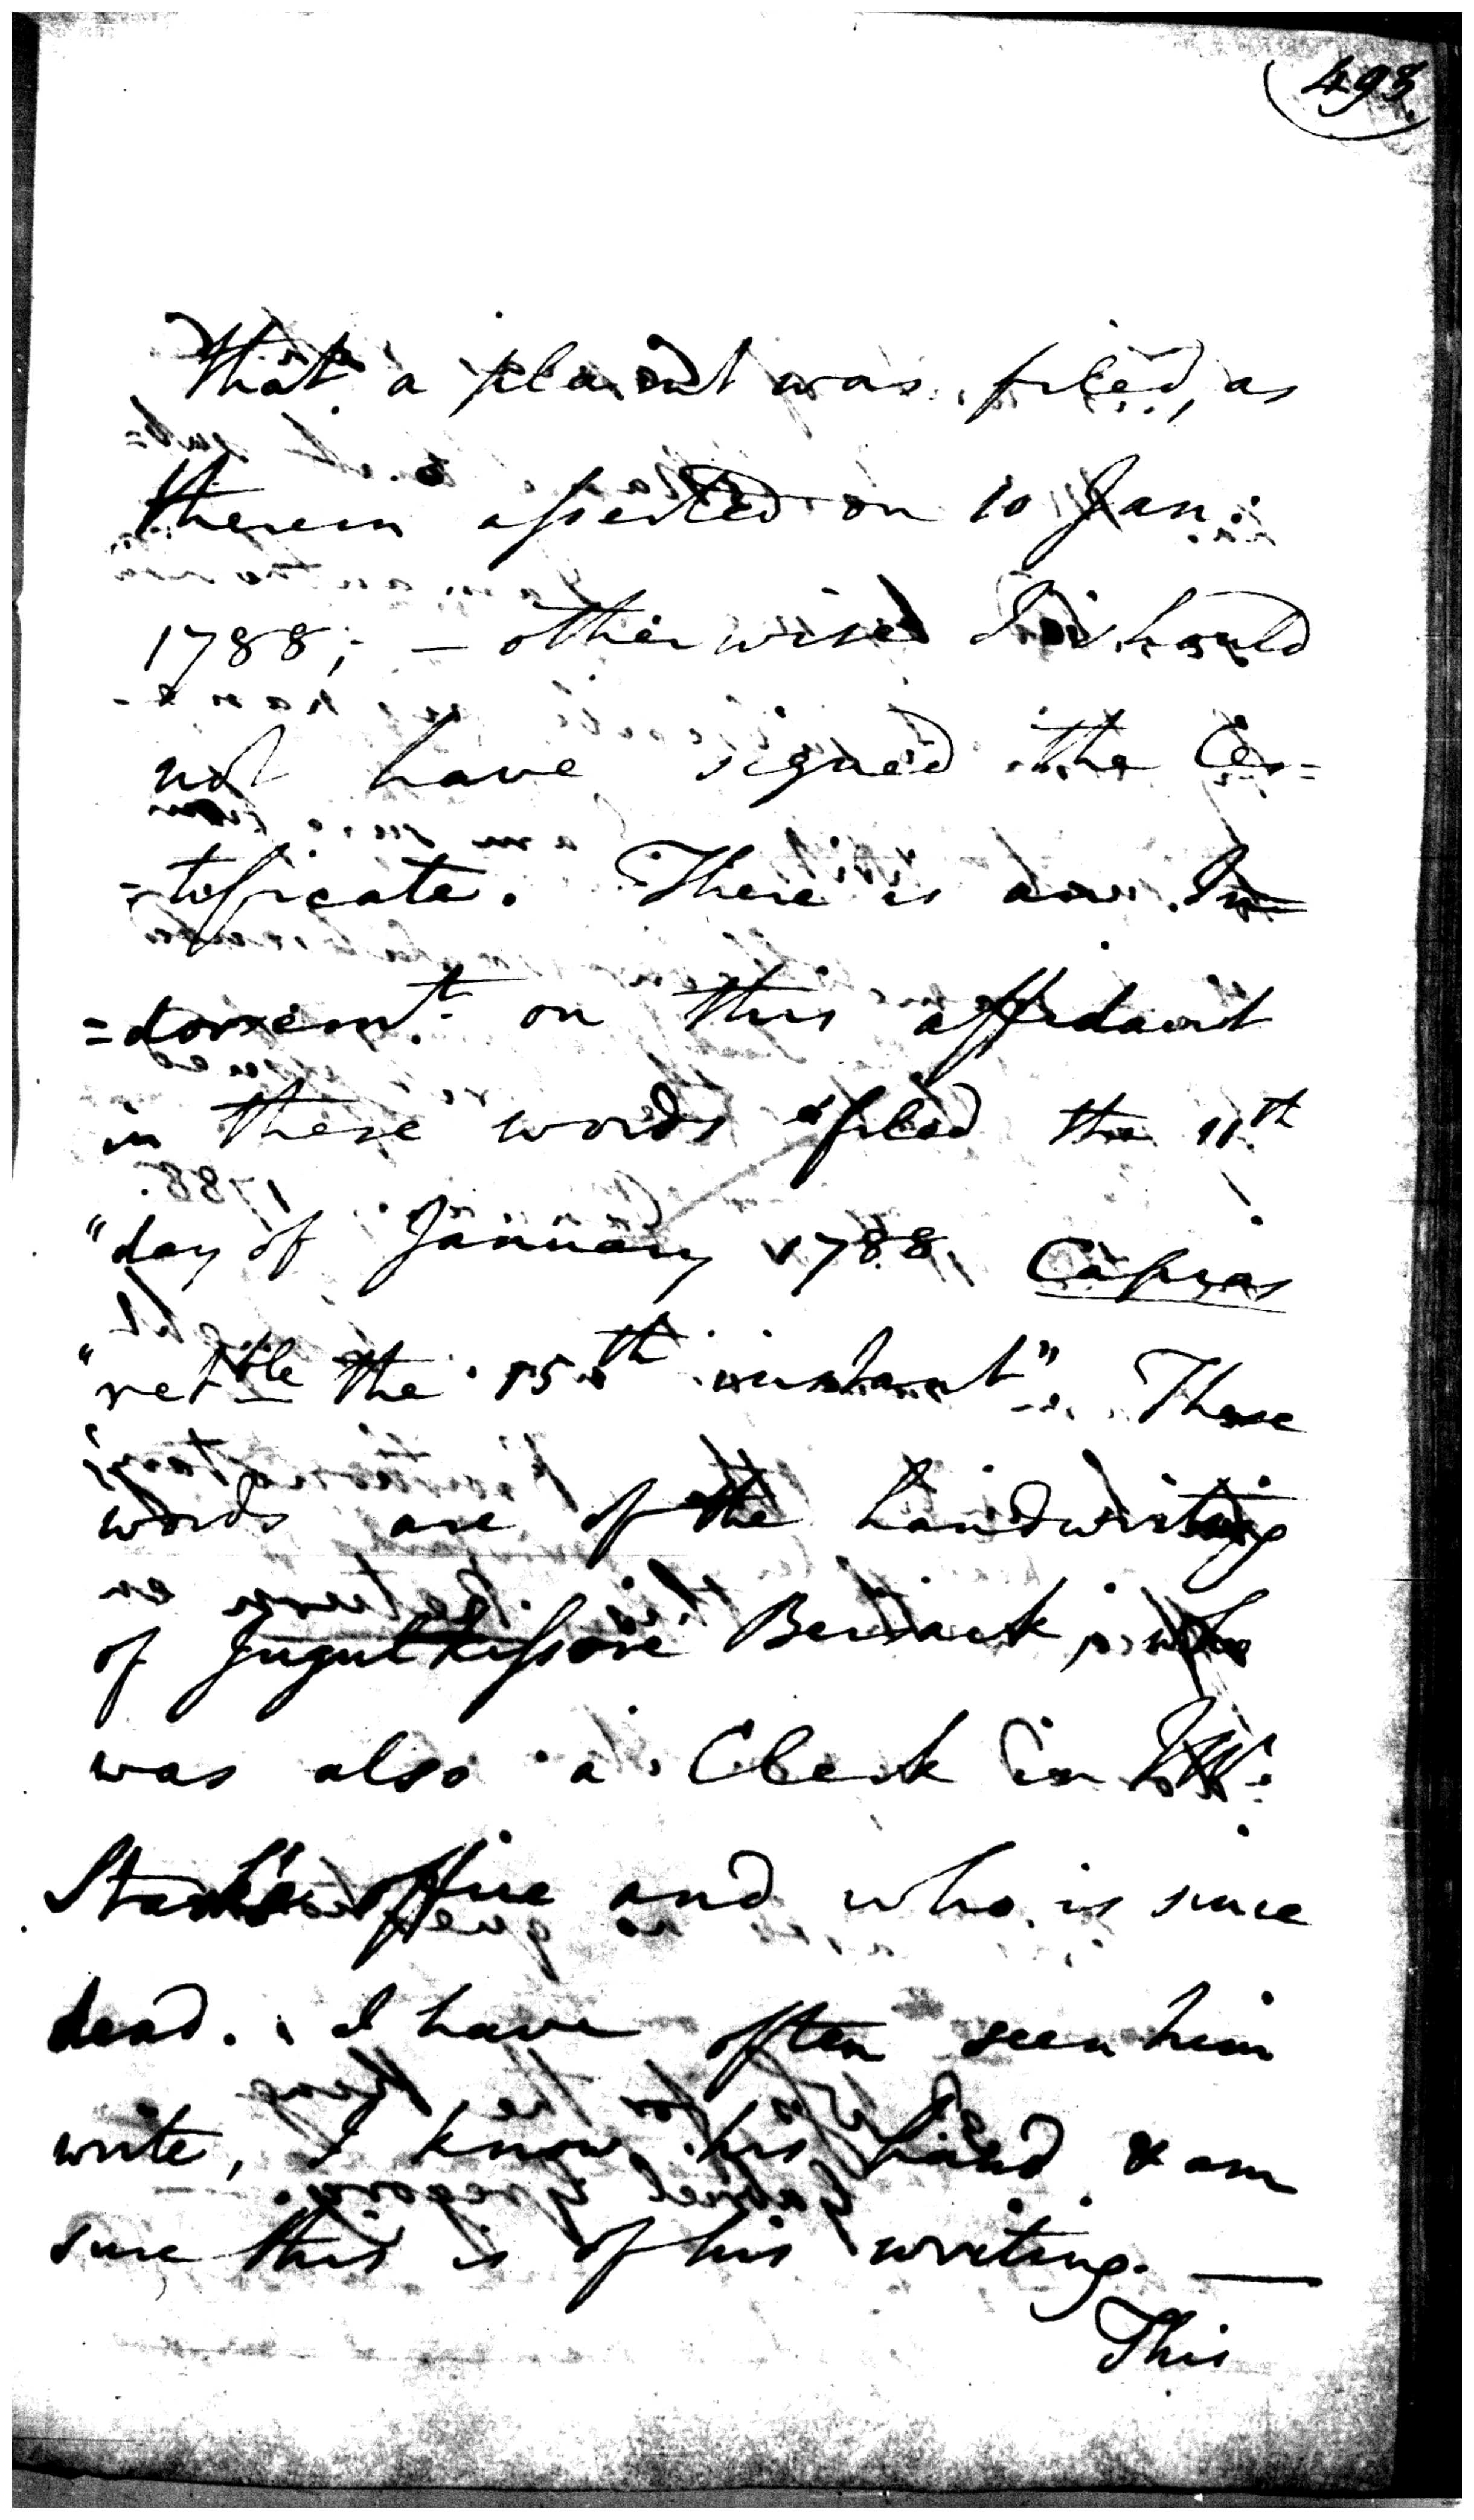 493.
That a plaint was filed, as
therein assented on 10 Jan:
1788; – otherwise I should
not have signed the Cer=
=tificate. There is an In=
=dorsem.t on this affidavit
in these words "filed the 11.th
"day of January 1788 Capias
"ret.ble the 15.th instant". These
words are of the handwriting
of Jugutkissore, who
was also a Clerk in Mr.
office and who is since
dead. I have often seen him
write, I know his hand & am
sure this is of his writing. —
This